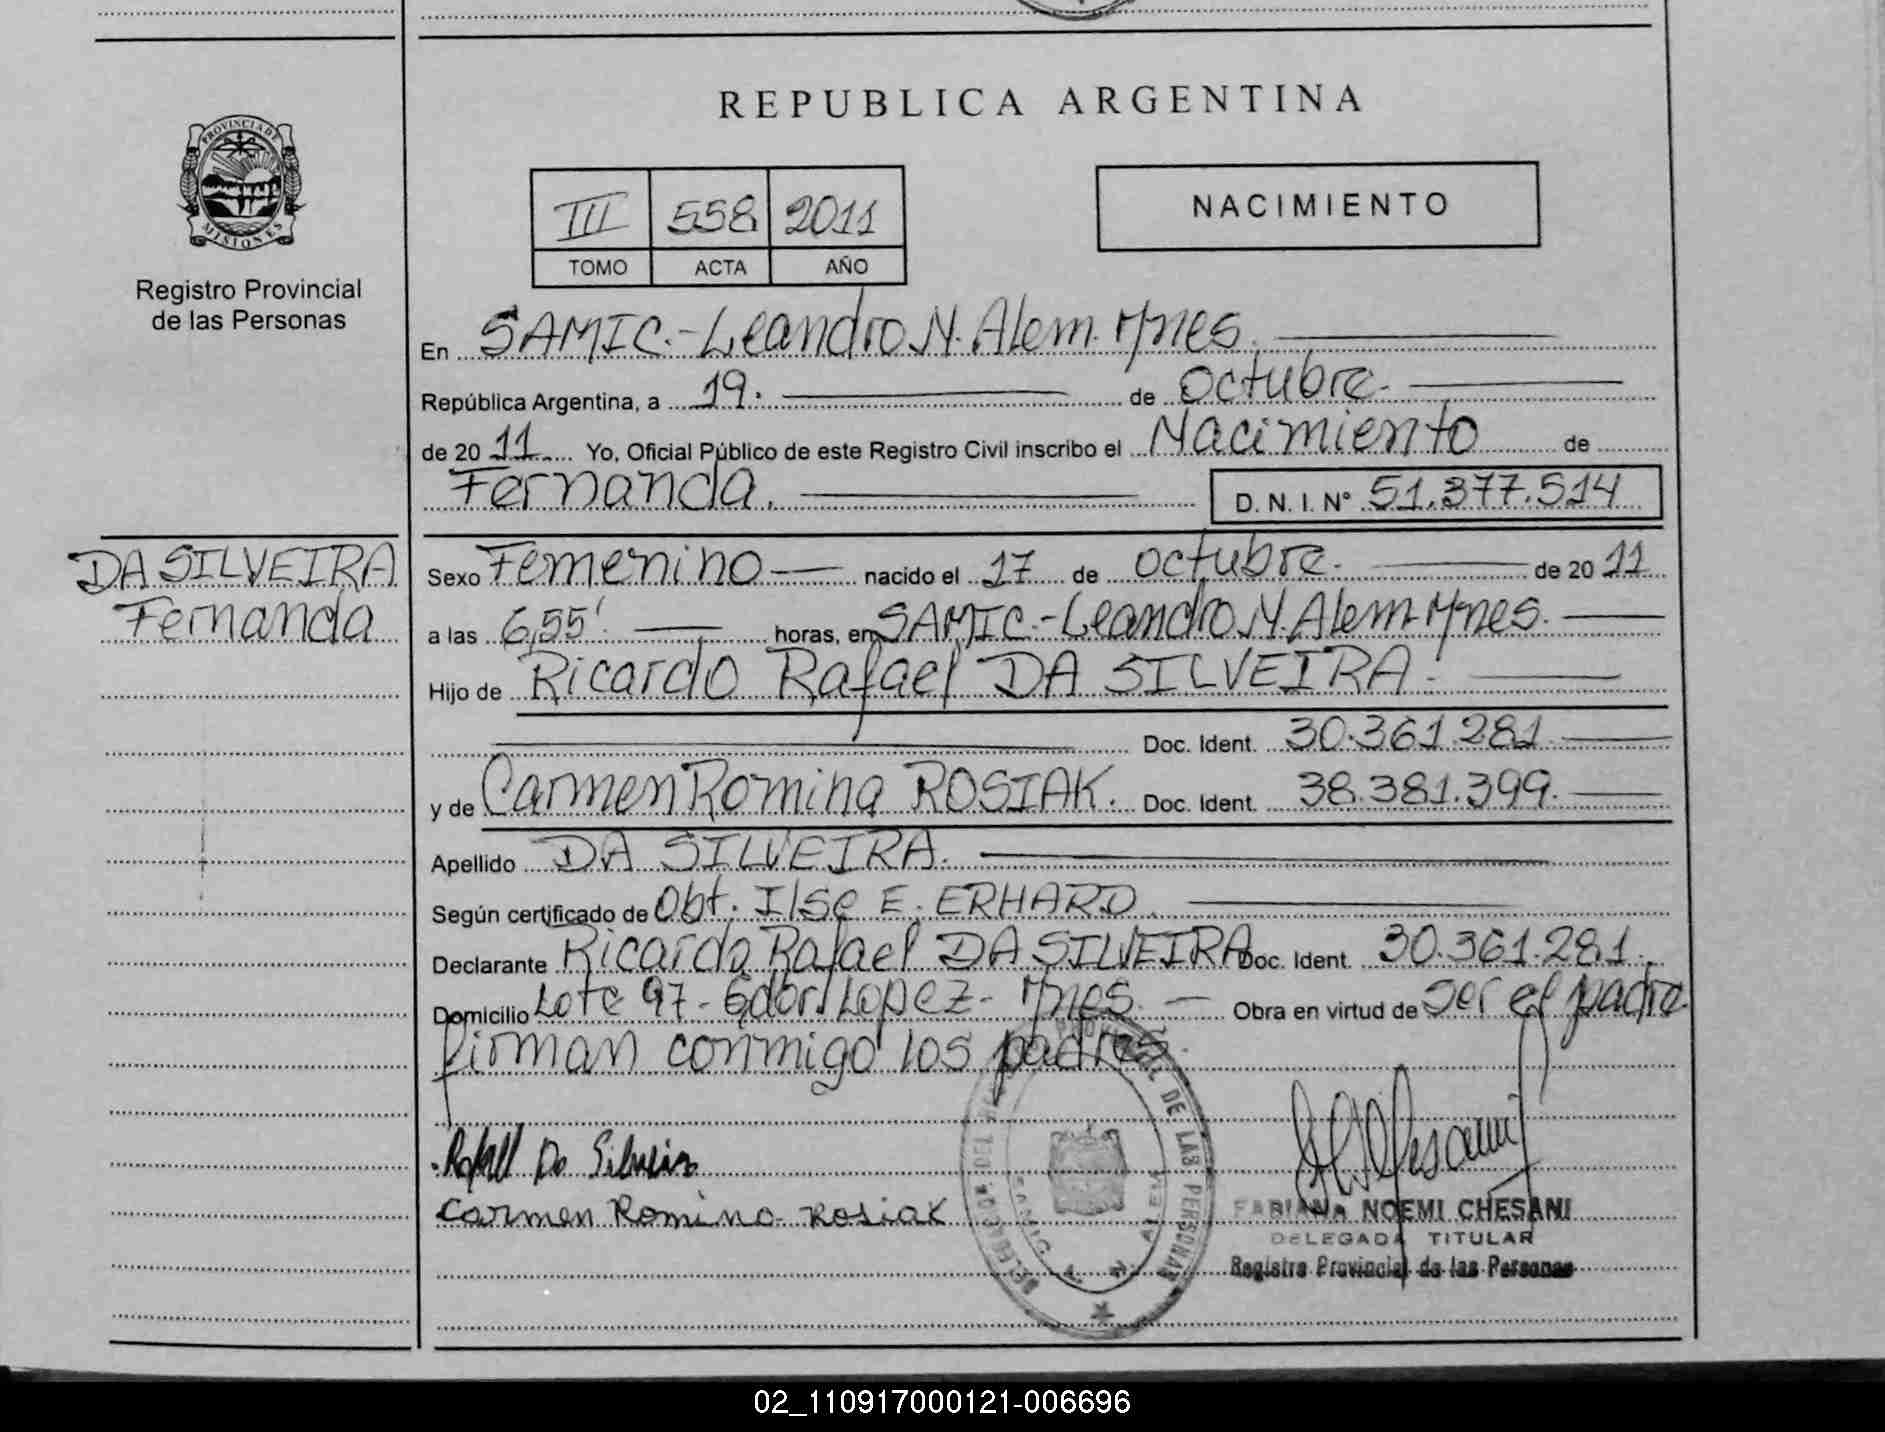 PROVINCIA DE
MISIONES
Registro Provincial
de las Personas
DA SILVEIRA
Fernanda
REPUBLICA ARGENTINA
III 558 2011
TOMO ACTA AÑO
NACIMIENTO
En SAMIC.-Leandro N. Alem. Mnes.
República Argentina, a 19. de octubre.
de 20 11 Yo, Oficial Público de este Registro Civil inscribo el Nacimiento de
Fernanda. D. N. I. Nº 51.377.514
Sexo Femenino nacido el 17 de octubre. de 20 11
a las 6,55' horas, en SAMIC.-Leandro N. Alem. Mnes.
Hijo de Ricardo Rafael DA SILVEIRA.
Doc. Ident. 30.361.281
y de Carmen Romina ROSIAK. Doc. Ident. 38.381.399.
Apellido DA SILVEIRA.
Según certificado de Obt. Ilse E. ERHARD.
Declarante Ricardo Rafael DA SILVEIRA Doc. Ident. 30.361.281.
Domicilio Lote 97- Gdor. Lopez- Mnes. Obra en virtud de ser el padre
firman conmigo los padres.
Rafael Da Silveira
Carmen Romina Rosiak
DE LAS PERSONAS
FABIANA NOEMI CHESANI
DELEGADA TITULAR
Registro Provincial de las Personas
02_110917000121-006696